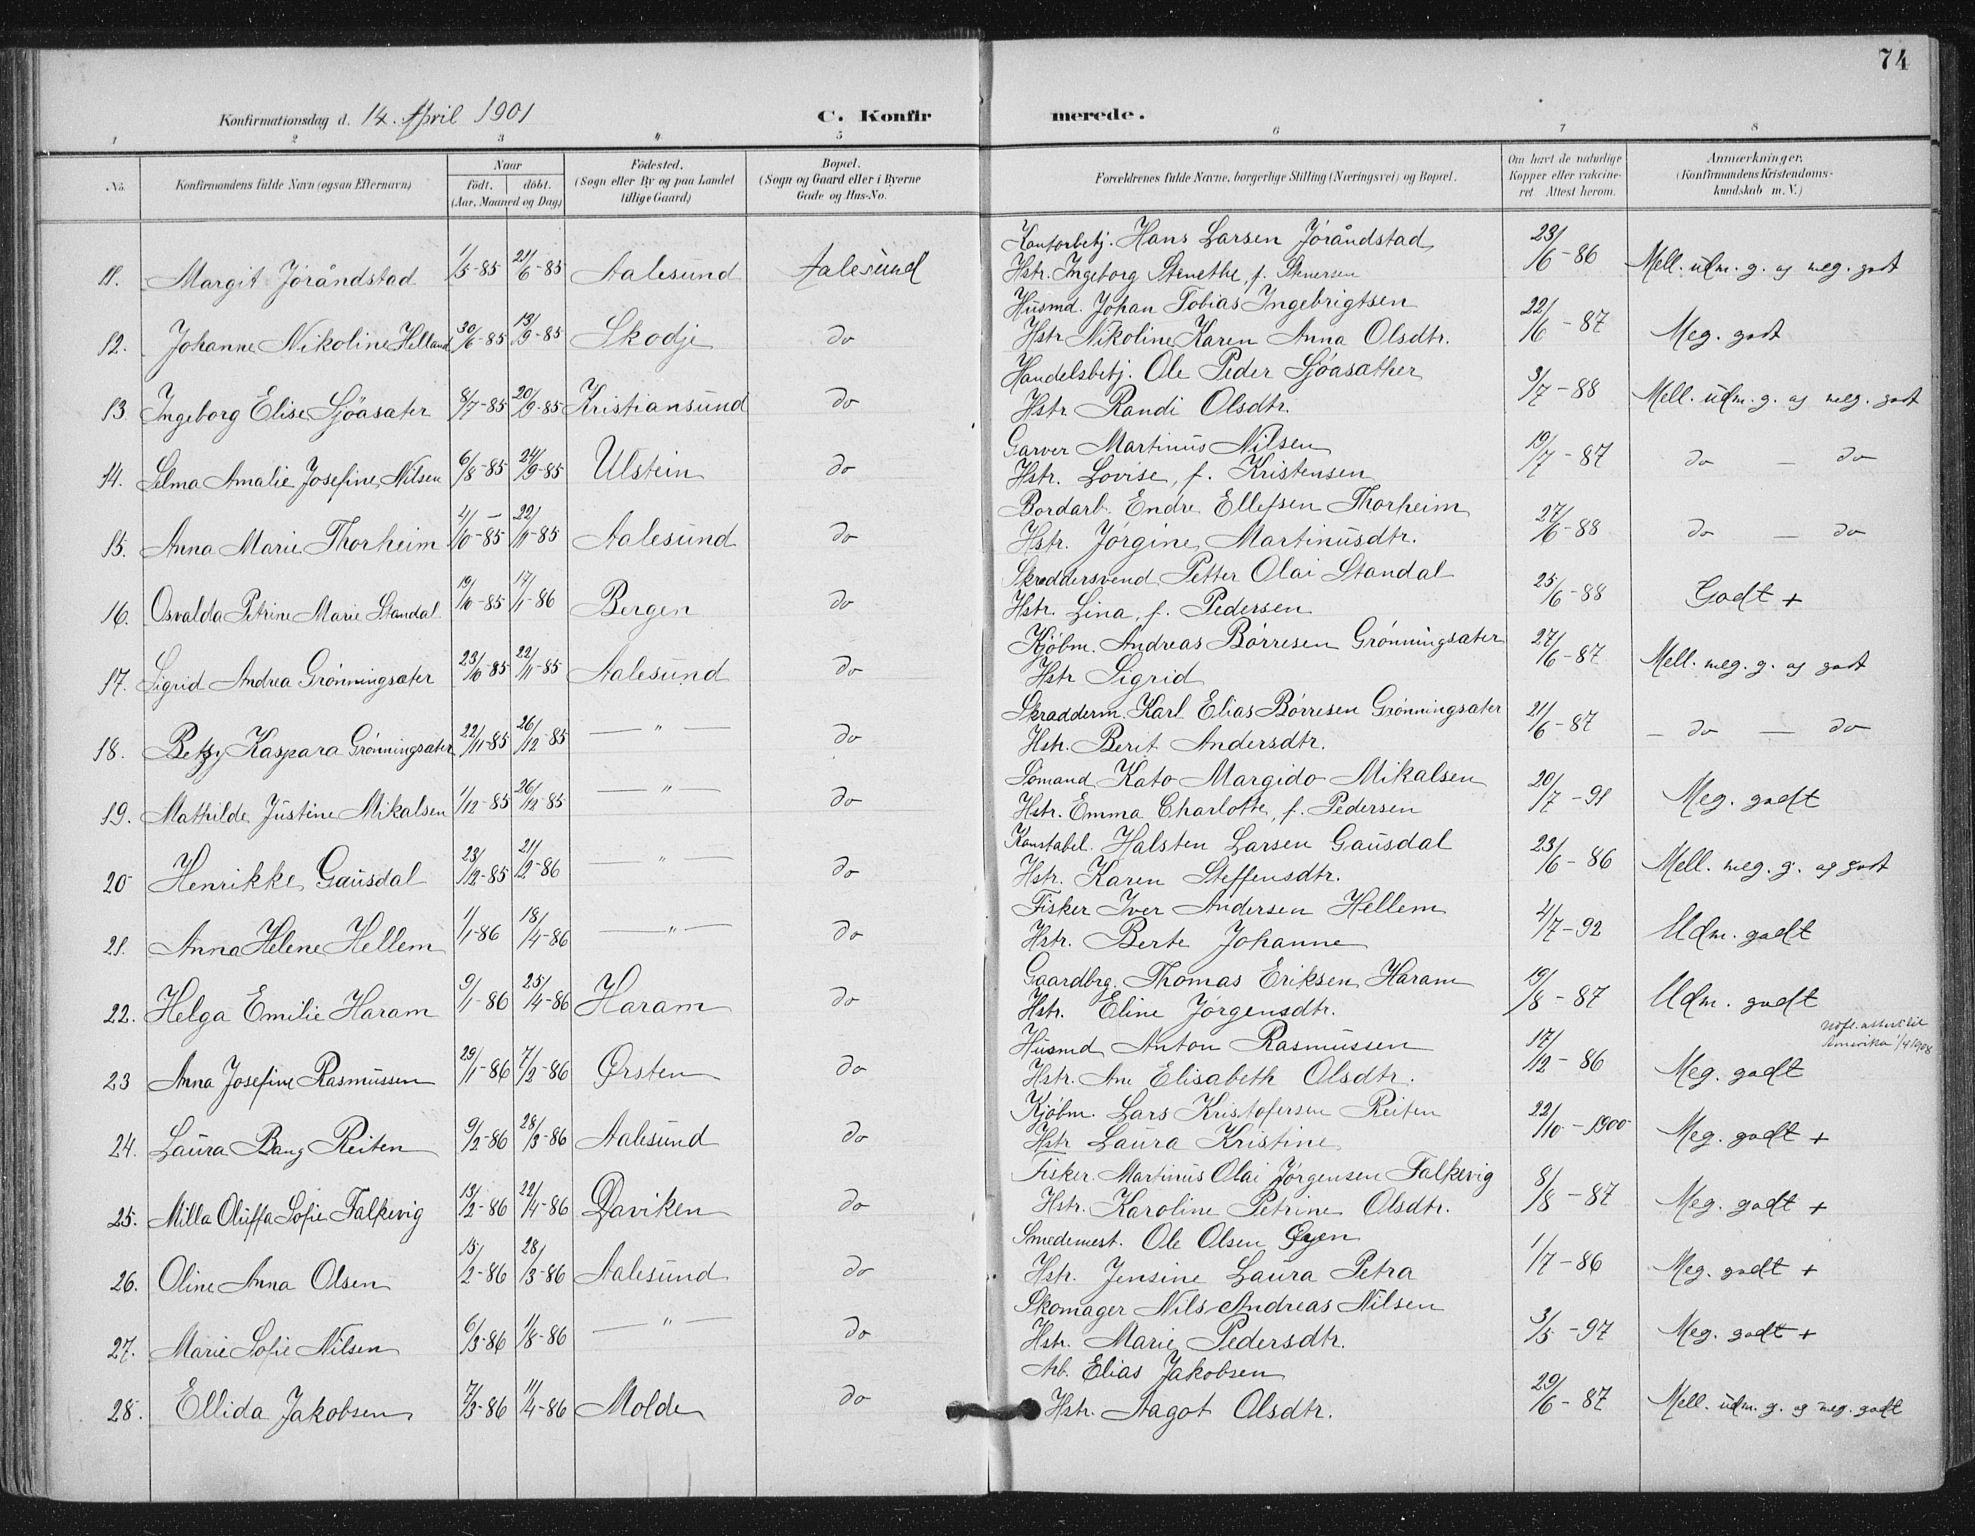 74
Konfirmationsdag d. 14. April 1901
C. Konfirmerede.
1 2 3 4 5 6 7 8
No.
Konfirmandens fulde Navn (ogsaa Efternavn)
Naar
födt. döbt.
(Aar, Maaned og Dag)
Födested.
(Sogn eller By og paa Landet
tillige Gaard)
Bopæl.
(Sogn og Gaard eller i Byerne
Gade og Hus-No.
Forældrenes fulde Navne, borgerlige Stilling (Næringsvei) og Bopæl.
Om havt de naturlige
Kopper eller vakcine-
ret. Attest herom.
Anmærkninger.
(Konfirmandens Kristendoms-
kundskab m. V.)
11. Margit Jöråndstad 1/5-85 21/6-85 Aalesund Aalesund Kontorbetj. Hans Larsen Jöråndstad 23/6-86 Mell. udm. g. og meg. godt
Hstr. Ingeborg Stenethe, f. Stenersen
12. Johanne Nikoline Helland 30/6-85 13/9-85 Skodje do Husmd. Johan Tobias Ingebrigtsen 22/6-87 Meg. godt
Hstr Nikoline Karen Anna Olsdtr.
13 Ingeborg Elise Sjöasæter 8/7-85 20/9-85 Kristiansund do Handelsbetj. Ole Peder Sjöasæther 3/7-88 Mell. udm. g. og meg. godt
Hstr Randi Olsdtr.
14. Selma Amalie Josefine Nilsen 6/8-85 24/9-85 Ulstein do Garver Martinus Nilsen 19/7-87 do — do
Hstr. Lovise, f. Kristensen
15. Anna Marie Thorheim 4/10-85 22/11-85 Aalesund do Bordarb. Endre Ellefsen Thorheim 27/6-88 do — do
Hstr. Jørgine Martinusdtr.
16. Osvalda Petrine Marie Standal 19/10-85 17/1-86 Bergen do Skreddersvend Petter Olai Standal 25/6-88 Godt +
Hstr. Lina, f. Pedersen
17. Sigrid Andrea Grönningsæter 23/10-85 22/11-85 Aalesund do Kjöbm. Andreas Børresen Grønningsæter 27/6-87 Mell. meg. g. og godt
Hstr Sigrid
18. Betzy Kaspara Grönningsæter 22/11-85 26/12-85 — " — do Skræderm. Karl Elias Børresen Grønningsæter 21/6-87 — do — do
Hstr. Berit Andersdtr.
19. Mathilde Justine Mikalsen 1/12-85 26/12-85 — " — do Sömand Kato Margido Mikalsen 20/7-91 Meg. godt
Hstr. Emma Charlotte, f. Pedersen
20 Henrikke Gausdal 23/12-85 21/2-86 — " — do Konstabel. Halsten Larsen Gausdal 23/6-86 Mell. meg. g. og godt
Hstr. Karen Steffensdtr.
21. Anna Helene Hellem 1/1-86 18/4-86 — " — do Fisker Iver Andersen Hellem 4/7-92 Udm. godt
Hstr. Berte Johanne
22. Helga Emilie Haram 9/1-86 25/4-86 Haram do Gaardbrg. Thomas Eriksen Haram 19/8-87 Udm. godt
Hstr. Eline Jørgensdtr.
23 Anna Josefine Rasmussen 29/1-86 7/2-86 Ørsten do Husmd Anton Rasmussen 17/12-86 Meg. godt
Udfl. attest til
Amerika 1/4 1908
Hstr. Ane Elisabeth Olsdtr.
24. Laura Bang Reiten 9/2-86 28/3-86 Aalesund do Kjöbm. Lars Kristofersen Reiten 22/10-1900 Meg. godt +
Hstr Laura Kristine
25. Milla Oluffa Sofie Falkevig 13/2-86 22/4-86 Daviken do Fisker Martinus Olai Jørgensen Falkevig 8/8-87 Meg. godt +
Hstr. Karoline Petrine Olsdtr.
26. Oline Anna Olsen 15/2-86 28/3-86 Aalesund do Smedemest. Ole Olsen Øyen 1/7-86 Meg. godt +
Hstr. Jensine Laura Petra
27. Marie Sofie Nilsen 6/3-86 1/8-86 — " — do Skomager Nils Andreas Nilsen 3/5-97 Meg. godt +
Hstr. Marie Pedersdtr.
28. Ellida Jakobsen 7/3-86 11/4-86 Molde do Arb. Elias Jakobsen 29/6-87 Mell. udm. g. og meg. godt
Hstr. Aagot Olsdtr.